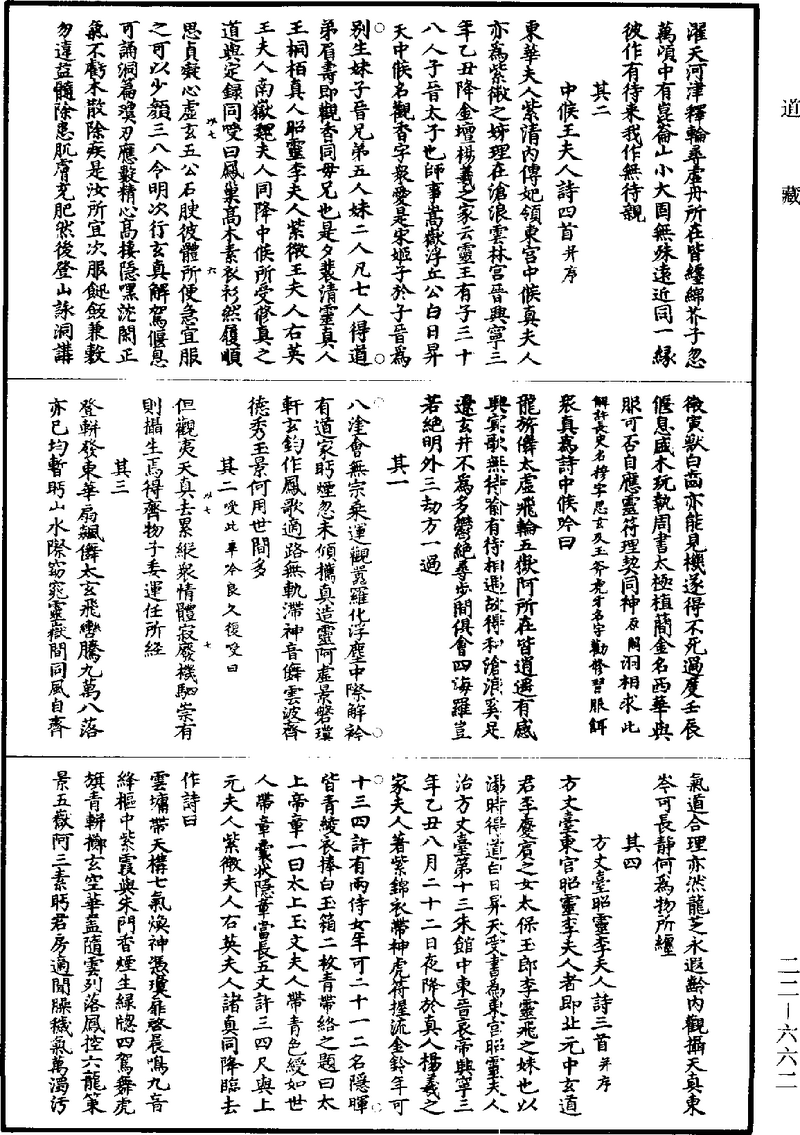 道藏
二二－六六二
濯天河津釋輪尋虛舟所在皆纏綿芥子忽
萬頃中有崑崙山小大固無殊遠近同一緣
彼作有待來我作無待親
其二
中候王夫人詩四首并序
東華夫人紫清內傳妃領東宮中候真夫人
亦為紫微之姊理在滄浪雲林宮晉興寧三
年乙丑降金壇楊羲之家云靈王有子三十
八人子晉太子也師事嵩嶽浮丘公白日昇
天中候名觀香字衆愛是宋姬子於子晉為
別生妹子晉兄弟五人妹二人凡七人得道
弟眉壽即觀香同毋兄也是夕裴清靈真人
王桐栢真人昭靈李夫人紫微王夫人右英
王夫人南嶽魏夫人同降中候所受修真之
道與定録同唆曰鳳巢髙木素衣衫然履順
思貞凝心虛玄五公石腴彼體所便急宜服
之可以少顏三八令明次行玄真解駕偃息
可誦洞篇瓊刃應數精心高棲隱嘿沈閑正
氣不虧朩散除疾是汝所宜次服䭀飯兼穀
勿違益髓除患肌膚充肥然後登山詠洞講
微寅獸白齒亦能見機遂得不死過度壬辰
偃息盛木玩執周書太極植蕳金名西華與
服可否自應靈符理契同神原開洞相求此
解許長史名穆字思玄及玉斧虎牙名字勸修習服餌
衆真為詩中候吟曰
龍旂儛太虛飛輪五嶽阿所在皆逍遥有感
興冥歌無待喻有待相遇故得和滄浪奚足
遼玄井不為多鬱絶尋步間俱會四海羅豈
若絶明外三劫方一過
其一
八塗會無宗乘運觀囂羅化浮塵中際解衿
有道家眄煙忽未傾攜真造靈阿虛景磐瓊
軒玄鈞作鳳歌適路無軌滯神音儛雲波齊
德秀王景何用世間多
其二唆此章吟良久復唆曰
但觀夷天真去累縱衆情體寂廢機駟崇有
則攝生焉得齊物子委運任所經
其三
登軿發東華扇飆儛太玄飛轡騰九萬八落
亦已均暫眄山水際窈窕靈嶽間同風自齊
氣道合理亦然龍芝永遐齡內觀攝天真東
岑可長靜何為物所纏
其四
方丈臺昭靈李夫人詩三首并序
方丈臺東宮昭靈李夫人者即北元中玄道
君李慶賓之女太保玉郎李靈飛之妹也以
湯時得道白日昇天受書為東宮昭靈夫人
治方丈臺第十三朱館中東晉哀帝興寧三
年乙丑八月二十二日夜降於真人楊羲之
家夫人著紫錦衣帶神虎符握流金鈴年可
十三四許有兩侍女年可二十一二名隱暉
皆青綾衣捧白玉箱二枚青帶絡之題曰太
上帝章一曰太上玉文夫人帶青色綬如世
人帶章囊狀隱章當長五丈許三四尺與上
元夫人紫微夫人右英夫人諸真同降臨去
作詩曰
雲墉帶天構七氣煥神憑瓊扉啓晨鳴九音
絳樞中紫霞與朱門香煙生緑牕四駕舞虎
旗青軿擲玄空華蓋隨雲列落鳳控六龍策
景五嶽阿三素眄君房適聞臊穢氣萬濁汚